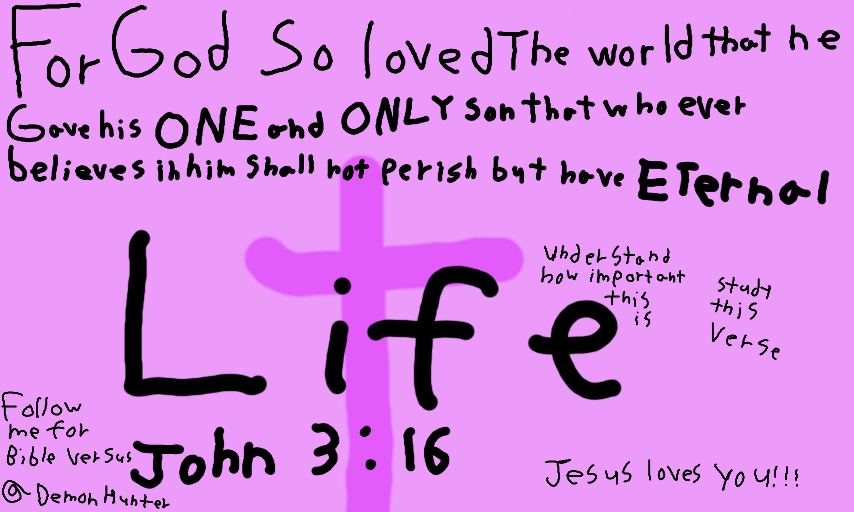 For God So loved The world that he
Gave his ONE and ONLY Son that who ever
believes in him Shall not perish but have ETernal
Life
understand
how important
this
is
study
this
Verse
Follow
me for
Bible Versus
@ DemonHunter
John 3:16
Jesus loves you!!!